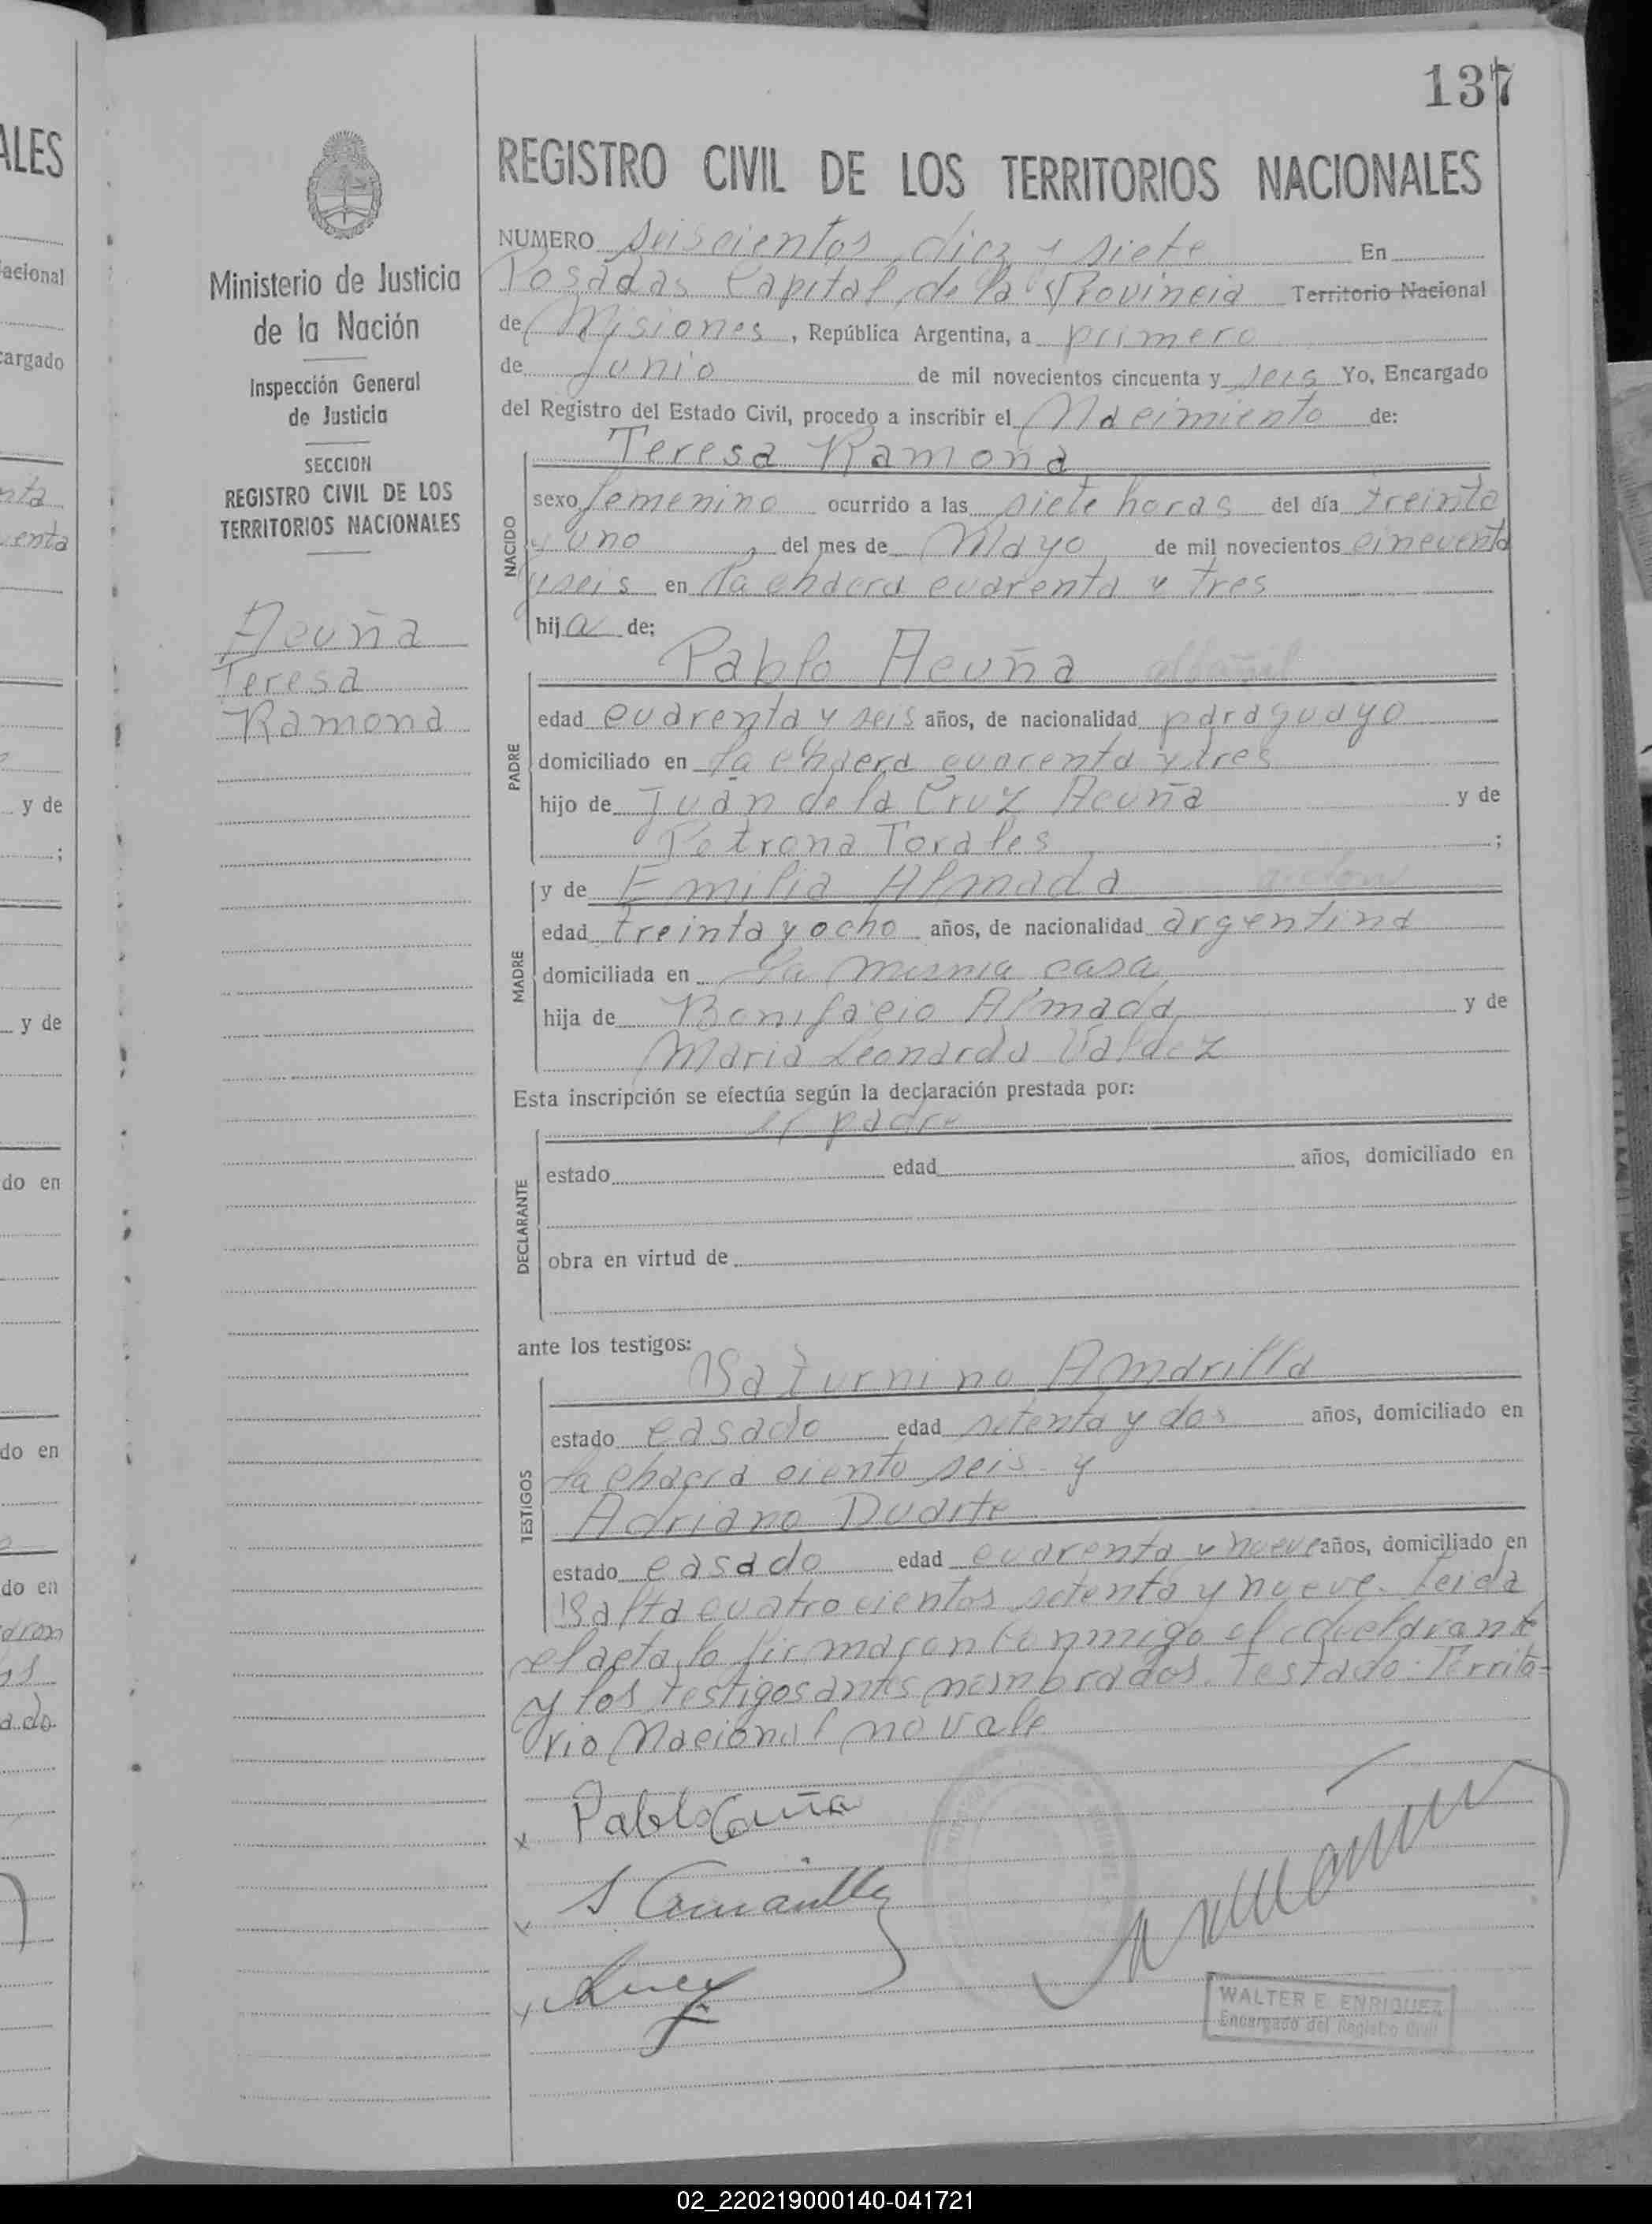 137
ALES
REGISTRO CIVIL DE LOS TERRITORIOS NACIONALES
Ministerio de Justicia
de la Nación
Inspección General
de Justicia
SECCION
REGISTRO CIVIL DE LOS
TERRITORIOS NACIONALES
Acuña
Teresa
Ramona
NUMERO seiscientos diez y siete En
Posadas Capital de la Provincia Territorio Nacional
de Misiones, República Argentina, a primero
de Junio de mil novecientos cincuenta y seis Yo, Encargado
del Registro del Estado Civil, procedo a inscribir el Nacimiento de:
Teresa Ramona
NACIDO
sexo femenino ocurrido a las siete horas del día treinta
y uno, del mes de Mayo de mil novecientos cincuenta
y seis en la chacra cuarenta y tres
hija de:
Pablo Acuña albañil
PADRE
edad cuarenta y seis años, de nacionalidad paraguayo
domiciliado en la chacra cuarenta y tres
hijo de Juan de la Cruz Acuña y de
Petrona Torales ;
y de Emilia Almada
MADRE
edad treinta y ocho años, de nacionalidad argentina
domiciliada en la misma casa
hija de Bonifacio Almada y de
Maria Leonarda Valdez
Esta inscripción se efectúa según la declaración prestada por:
el padre
DECLARANTE
estado edad años, domiciliado en
obra en virtud de
ante los testigos:
Saturnino Amarilla
TESTIGOS
estado casado edad setenta y dos años, domiciliado en
la chacra ciento seis y
Adriano Duarte
estado casado edad cuarenta y nueve años, domiciliado en
Salta cuatrocientos setenta y nueve. Leida
el acta, la firmaron conmigo el declarante
y los testigos antes nombrados. Testado: Territo-
rio Nacional no vale
x Pablo Acuña
S Amarilla
WALTER E. ENRIQUEZ
Encargado del Registro Civil
acional
cargado
y de
;
y de
do en
do en
do en
02_220219000140-041721